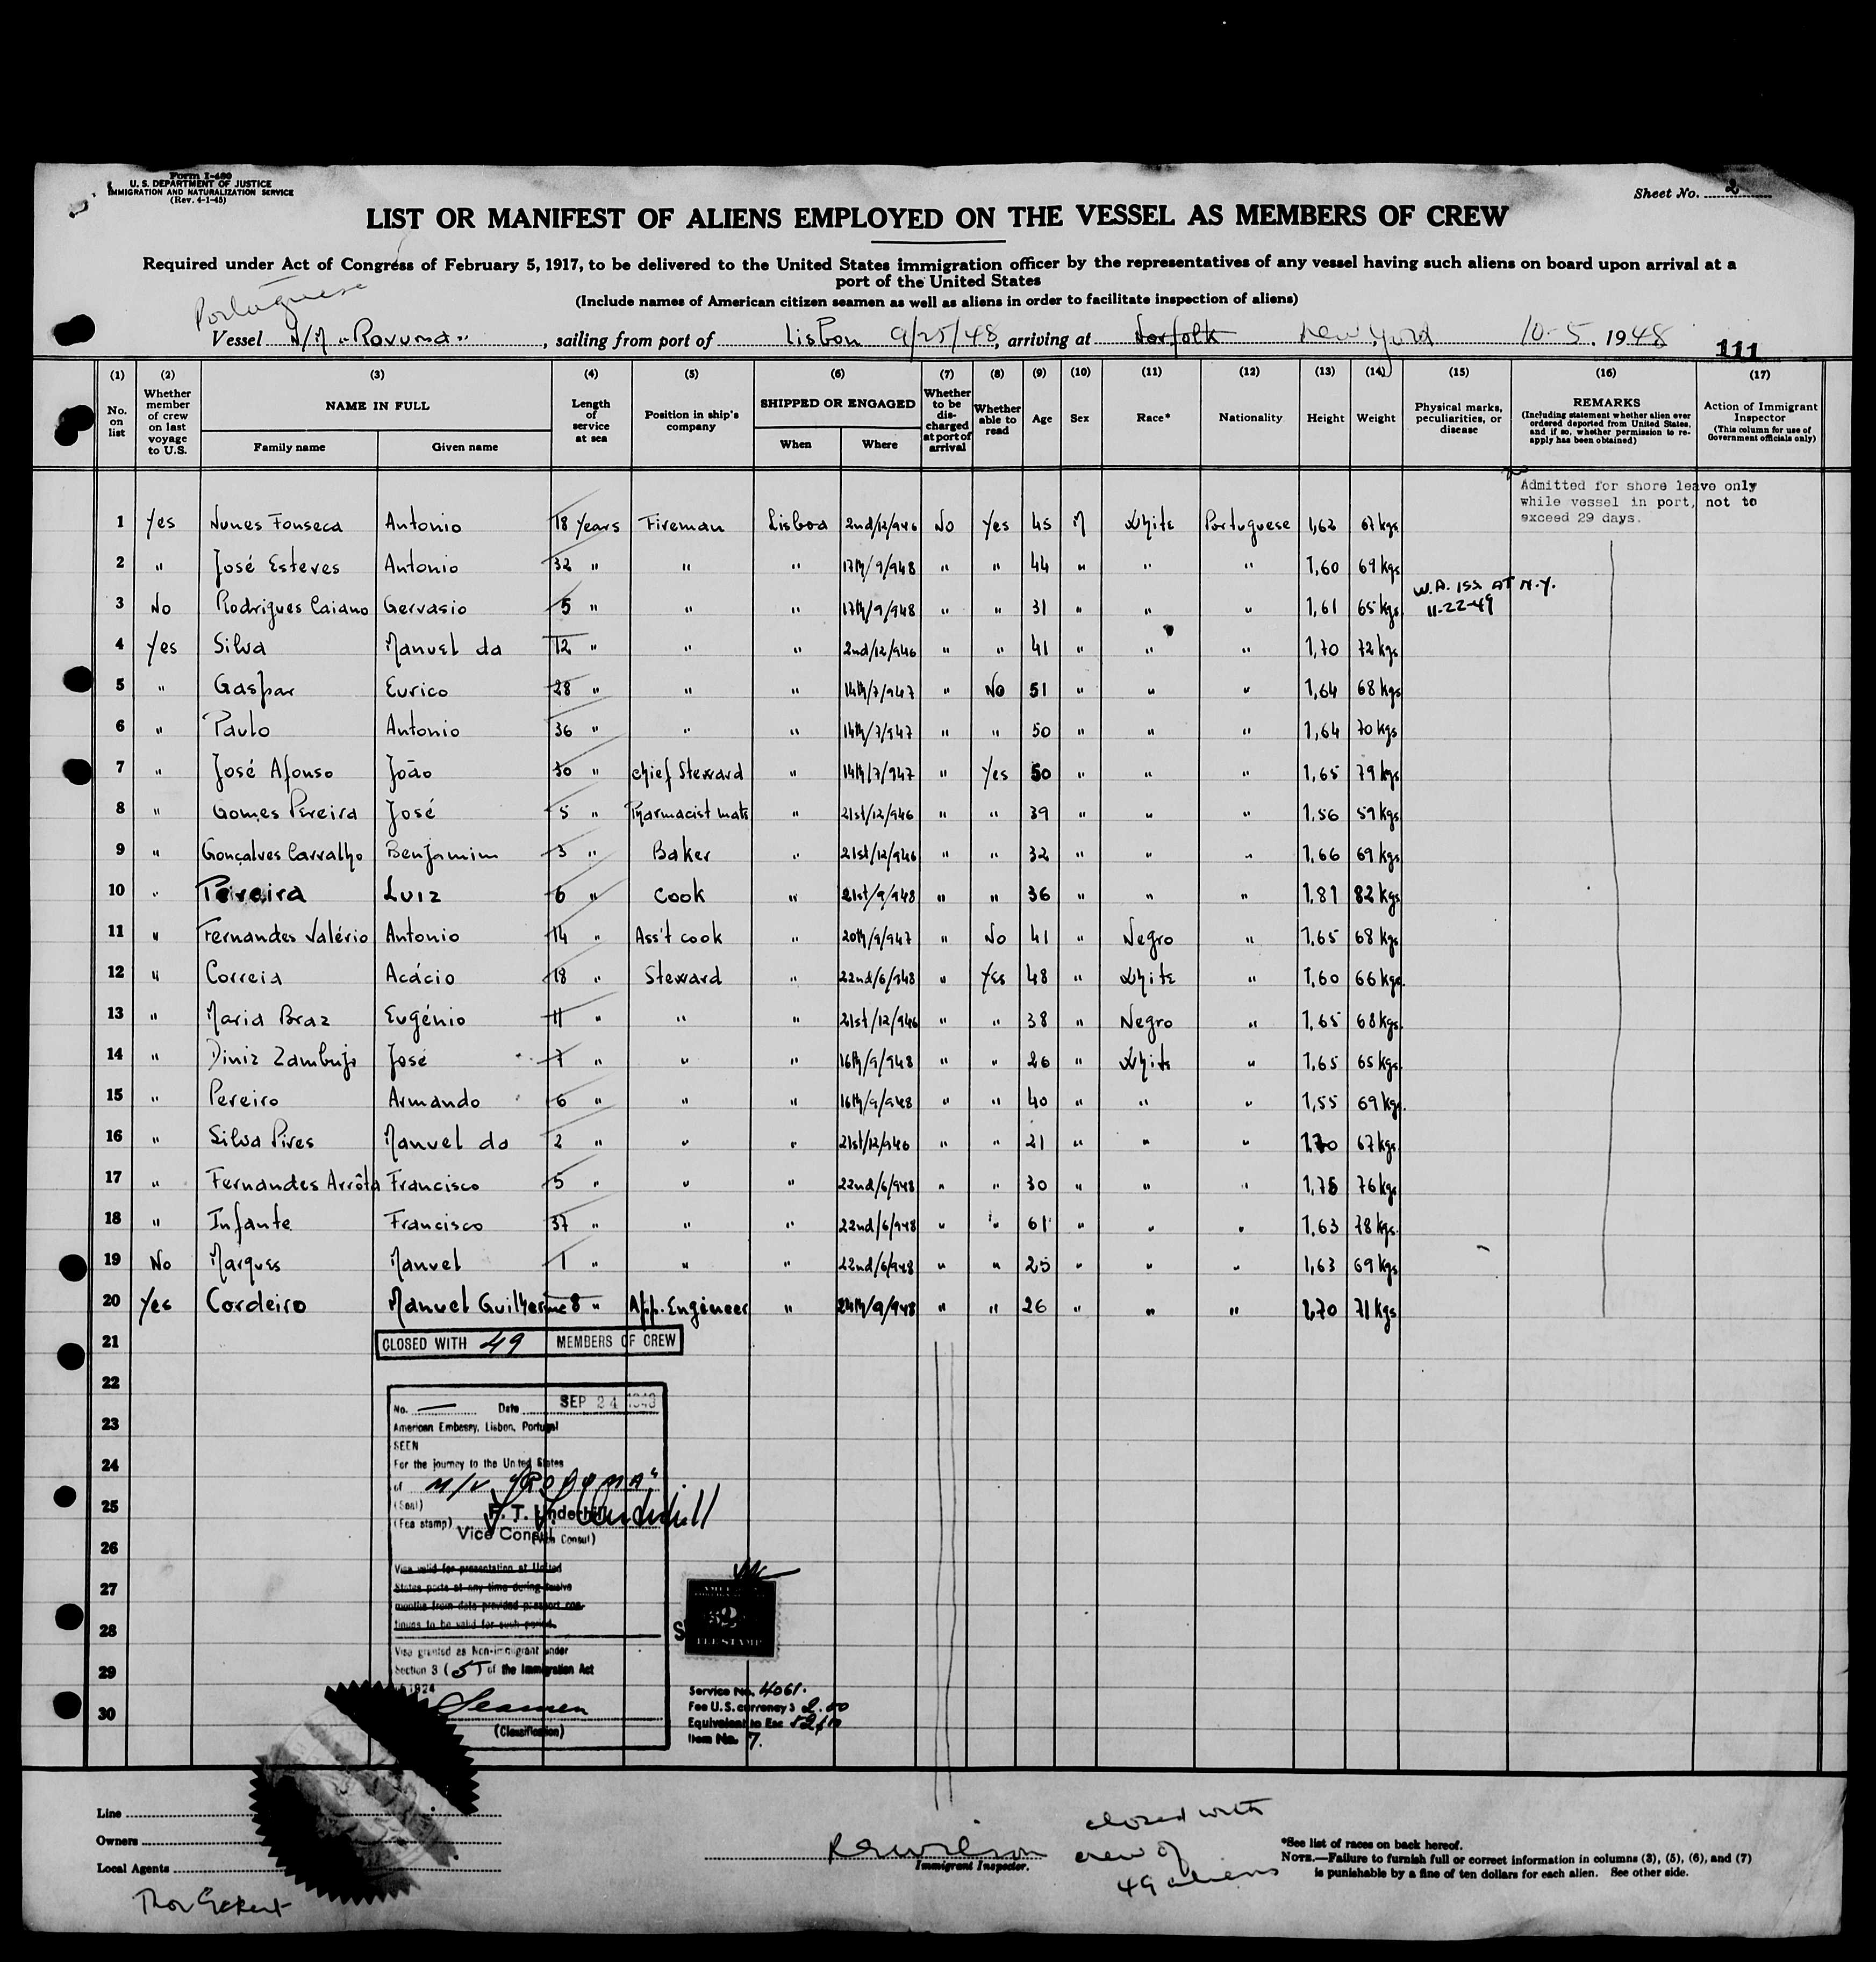 Form I-480
U. S. DEPARTMENT OF JUSTICE
IMMIGRATION AND NATURALIZATION SERVICE
(Rev. 4-1-45)
Sheet No. 2
LIST OR MANIFEST OF ALIENS EMPLOYED ON THE VESSEL AS MEMBERS OF CREW
Required under Act of Congress of February 5, 1917, to be delivered to the United States immigration officer by the representatives of any vessel having such aliens on board upon arrival at a
port of the United States
(Include names of American citizen seamen as well as aliens in order to facilitate inspection of aliens)
Portuguese
Vessel "Rovuma", sailing from port of Lisbon 9/25/48, arriving at Norfolk New York 10-5, 1948
111
(1) (2) (3) (4) (5) (6) (7) (8) (9) (10) (11) (12) (13) (14) (15) (16) (17)
No. on list | Whether member of crew on last voyage to U.S. | NAME IN FULL Family name Given name | Length of service at sea | Position in ship's company | SHIPPED OR ENGAGED When Where | Whether to be discharged at port of arrival | Whether able to read | Age | Sex | Race* | Nationality | Height | Weight | Physical marks, peculiarities, or disease | REMARKS (Including statement whether alien ever ordered deported from United States, and if so, whether permission to reapply has been obtained) | Action of Immigrant Inspector (This column for use of Government officials only)
Admitted for shore leave only
while vessel in port, not to
exceed 29 days.
1 Yes Nunes Fonseca Antonio 18 Years Fireman Lisboa 2nd/12/946 No Yes 45 M White Portuguese 1,62 67 kgs
2 " José Esteves Antonio 32 " " " 17th/9/948 " " 44 " " " 1,60 69 kgs
W.A. ISS AT N.Y.
11-22-49
3 No Rodrigues Caiano Gervasio 5 " " " 17th/9/948 " " 31 " " " 1,61 65 kgs
4 Yes Silva Manuel da 12 " " " 2nd/12/946 " " 41 " " " 1,70 72 kgs
5 " Gaspar Eurico 28 " " " 14th/7/947 " No 51 " " " 1,64 68 kgs
6 " Paulo Antonio 36 " " " 14th/7/947 " " 50 " " " 1,64 70 kgs
7 " José Afonso João 30 " chief Steward " 14th/7/947 " Yes 50 " " " 1,65 79 kgs
8 " Gomes Pereira José 5 " Pharmacist mate " 21st/12/946 " " 39 " " " 1,56 59 kgs
9 " Gonçalves Carvalho Benjamim 3 " Baker " 21st/12/946 " " 32 " " " 1,66 69 kgs
10 " Pereira Luiz 6 " Cook " 21st/9/948 " " 36 " " " 1,81 82 kgs
11 " Fernandes Valério Antonio 14 " Ass't cook " 20th/9/947 " No 41 " Negro " 1,65 68 kgs
12 " Correia Acácio 18 " Steward " 22nd/6/948 " Yes 48 " White " 1,60 66 kgs.
13 " Maria Braz Eugénio 11 " " " 21st/12/946 " " 38 " Negro " 1,65 68 kgs.
14 " Diniz Zambujo José 7 " " " 16th/9/948 " " 26 " White " 1,65 65 kgs.
15 " Pereiro Armando 6 " " " 16th/9/948 " " 40 " " " 1,55 69 kgs.
16 " Silva Pires Manuel da 2 " " " 21st/12/946 " " 21 " " " 1,70 67 kgs
17 " Fernandes Arrôta Francisco 5 " " " 22nd/6/948 " " 30 " " " 1,75 76 kgs
18 " Infante Francisco 37 " " " 22nd/6/948 " " 61 " " " 1,63 78 kgs.
19 No Marques Manuel 1 " " " 22nd/6/948 " " 25 " " " 1,63 69 kgs
20 Yes Cordeiro Manuel Guilherme 8 " App. Engineer " 24th/9/948 " " 26 " " " 1,70 71 kgs
21
CLOSED WITH 49 MEMBERS OF CREW
22
No. — Date SEP 24 1948
23
American Embassy, Lisbon, Portugal
SEEN
24
For the journey to the United States
of M/V "ROVUMA"
25
(Seal)
(Fee stamp) F. T. Underhill
Vice Consul (Vice Consul)
26
Visa valid for presentation at United
27
States ports at any time during twelve
months from date provided passport con-
tinues to be valid for such period.
28
FEE STAMP
Visa granted as Non-immigrant under
29
Section 3 (5) of the Immigration Act
1924
30
Seamen
(Classification)
Service No. 4061.
Fee U.S. currency $ 2.00
Equivalent to Esc
Item No. 7.
Line
Owners
Local Agents
Thor Eckert
Immigrant Inspector.
closed with
crew of
49 aliens
*See list of races on back hereof.
NOTE.—Failure to furnish full or correct information in columns (3), (5), (6), and (7)
is punishable by a fine of ten dollars for each alien. See other side.